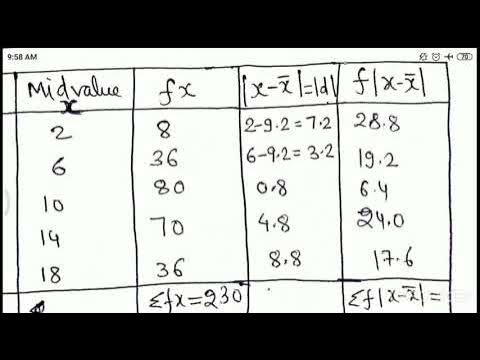 9:58 AM
70
Midvalue x | fx | |x-x̄|=|d| | f|x-x̄|
2 | 8 | 2-9.2=7.2 | 28.8
6 | 36 | 6-9.2=3.2 | 19.2
10 | 80 | 0.8 | 6.4
14 | 70 | 4.8 | 24.0
18 | 36 | 8.8 | 17.6
Σfx=230 | Σf|x-x̄|=